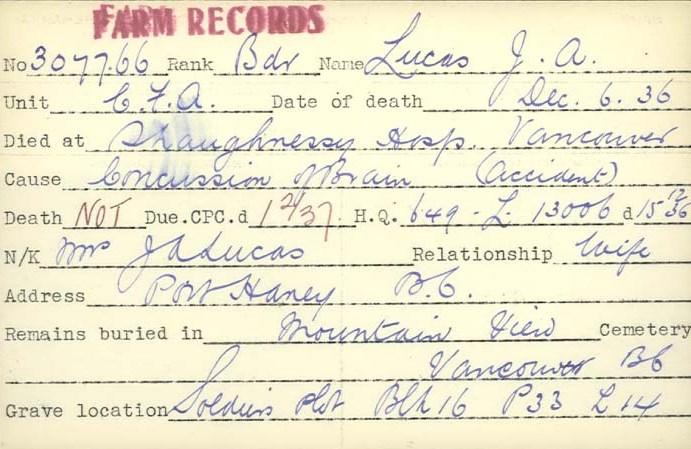 FARM RECORDS
No 307766 Rank Bdr Name Lucas J. A.
Unit C.F.A. Date of death Dec. 6. 36
Died at Shaughnessy Hosp. Vancouver
Cause Concussion of Brain (Accident)
Death NOT Due.CPC.d 12/1/37 H.Q. 649 - L. 13006 d 15 12/36
N/K Mrs J A Lucas Relationship Wife
Address Port Haney B.C.
Remains buried in Mountain View Cemetery
Vancouver BC
Grave location Soldiers plot Blk 16 P33 L14